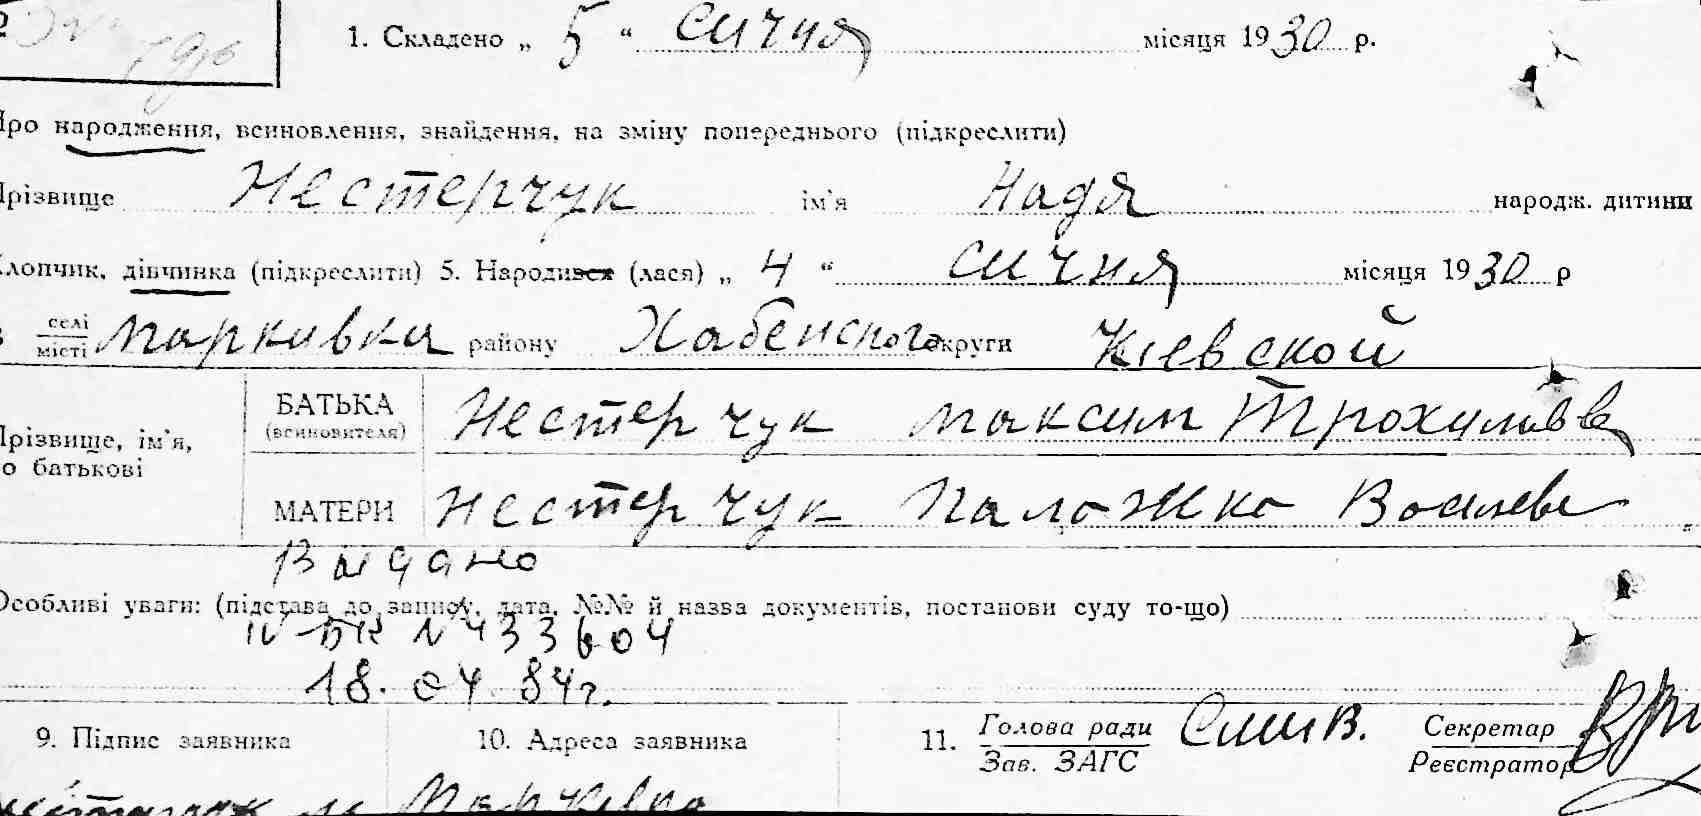 1. Складено „ 5 “ сичня місяця 1930 р.
Про народження, всиновлення, знайдення, на зміну попереднього (підкреслити)
Прізвище Нестерчук ім'я Надя народж. дитини
Хлопчик, дівчинка (підкреслити) 5. Народився (лася) „ 4 “ сичня місяця 1930 р
в селі місті Маркивка району Хабенского округи Киевской
БАТЬКА (всиновителя) Нестерчук Максим
Прізвище, ім'я, по батькові
МАТЕРИ Нестерчук
Выдано
Особливі уваги: (підстава до запису, дата, №№ й назва документів, постанови суду то-що)
IV-БК N 433604
18. 04 84г.
9. Підпис заявника 10. Адреса заявника 11. Голова ради Зав. ЗАГС Секретар Реєстратор